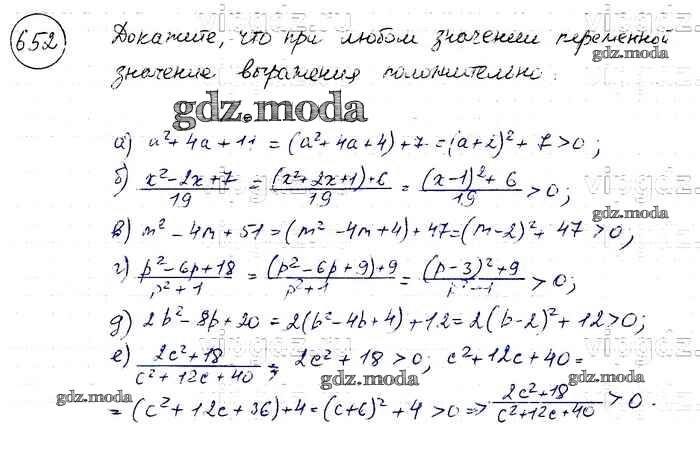 652 Докажите, что при любом значении переменной
значение выражения положительно.
gdz.moda
а) a²+4a+11 = (a²+4a+4)+7 = (a+2)²+7>0;
б) (x²-2x+7)/19 = ((x²+2x+1)+6)/19 = ((x-1)²+6)/19 >0;
в) m²-4m+51 = (m²-4m+4)+47 = (m-2)²+47>0;
г) (p²-6p+18)/(p²+1) = ((p²-6p+9)+9)/(p²+1) = ((p-3)²+9)/(p²+1) >0;
д) 2b²-8b+20 = 2(b²-4b+4)+12 = 2(b-2)²+12>0;
е) (2c²+18)/(c²+12c+40); 2c²+18>0; c²+12c+40=
= (c²+12c+36)+4 = (c+6)²+4>0 => (2c²+18)/(c²+12c+40) >0.
gdz.moda
gdz.moda
gdz.moda
gdz.moda
gdz.moda
gdz.moda
vipgdz
vipgdz
vipgdz